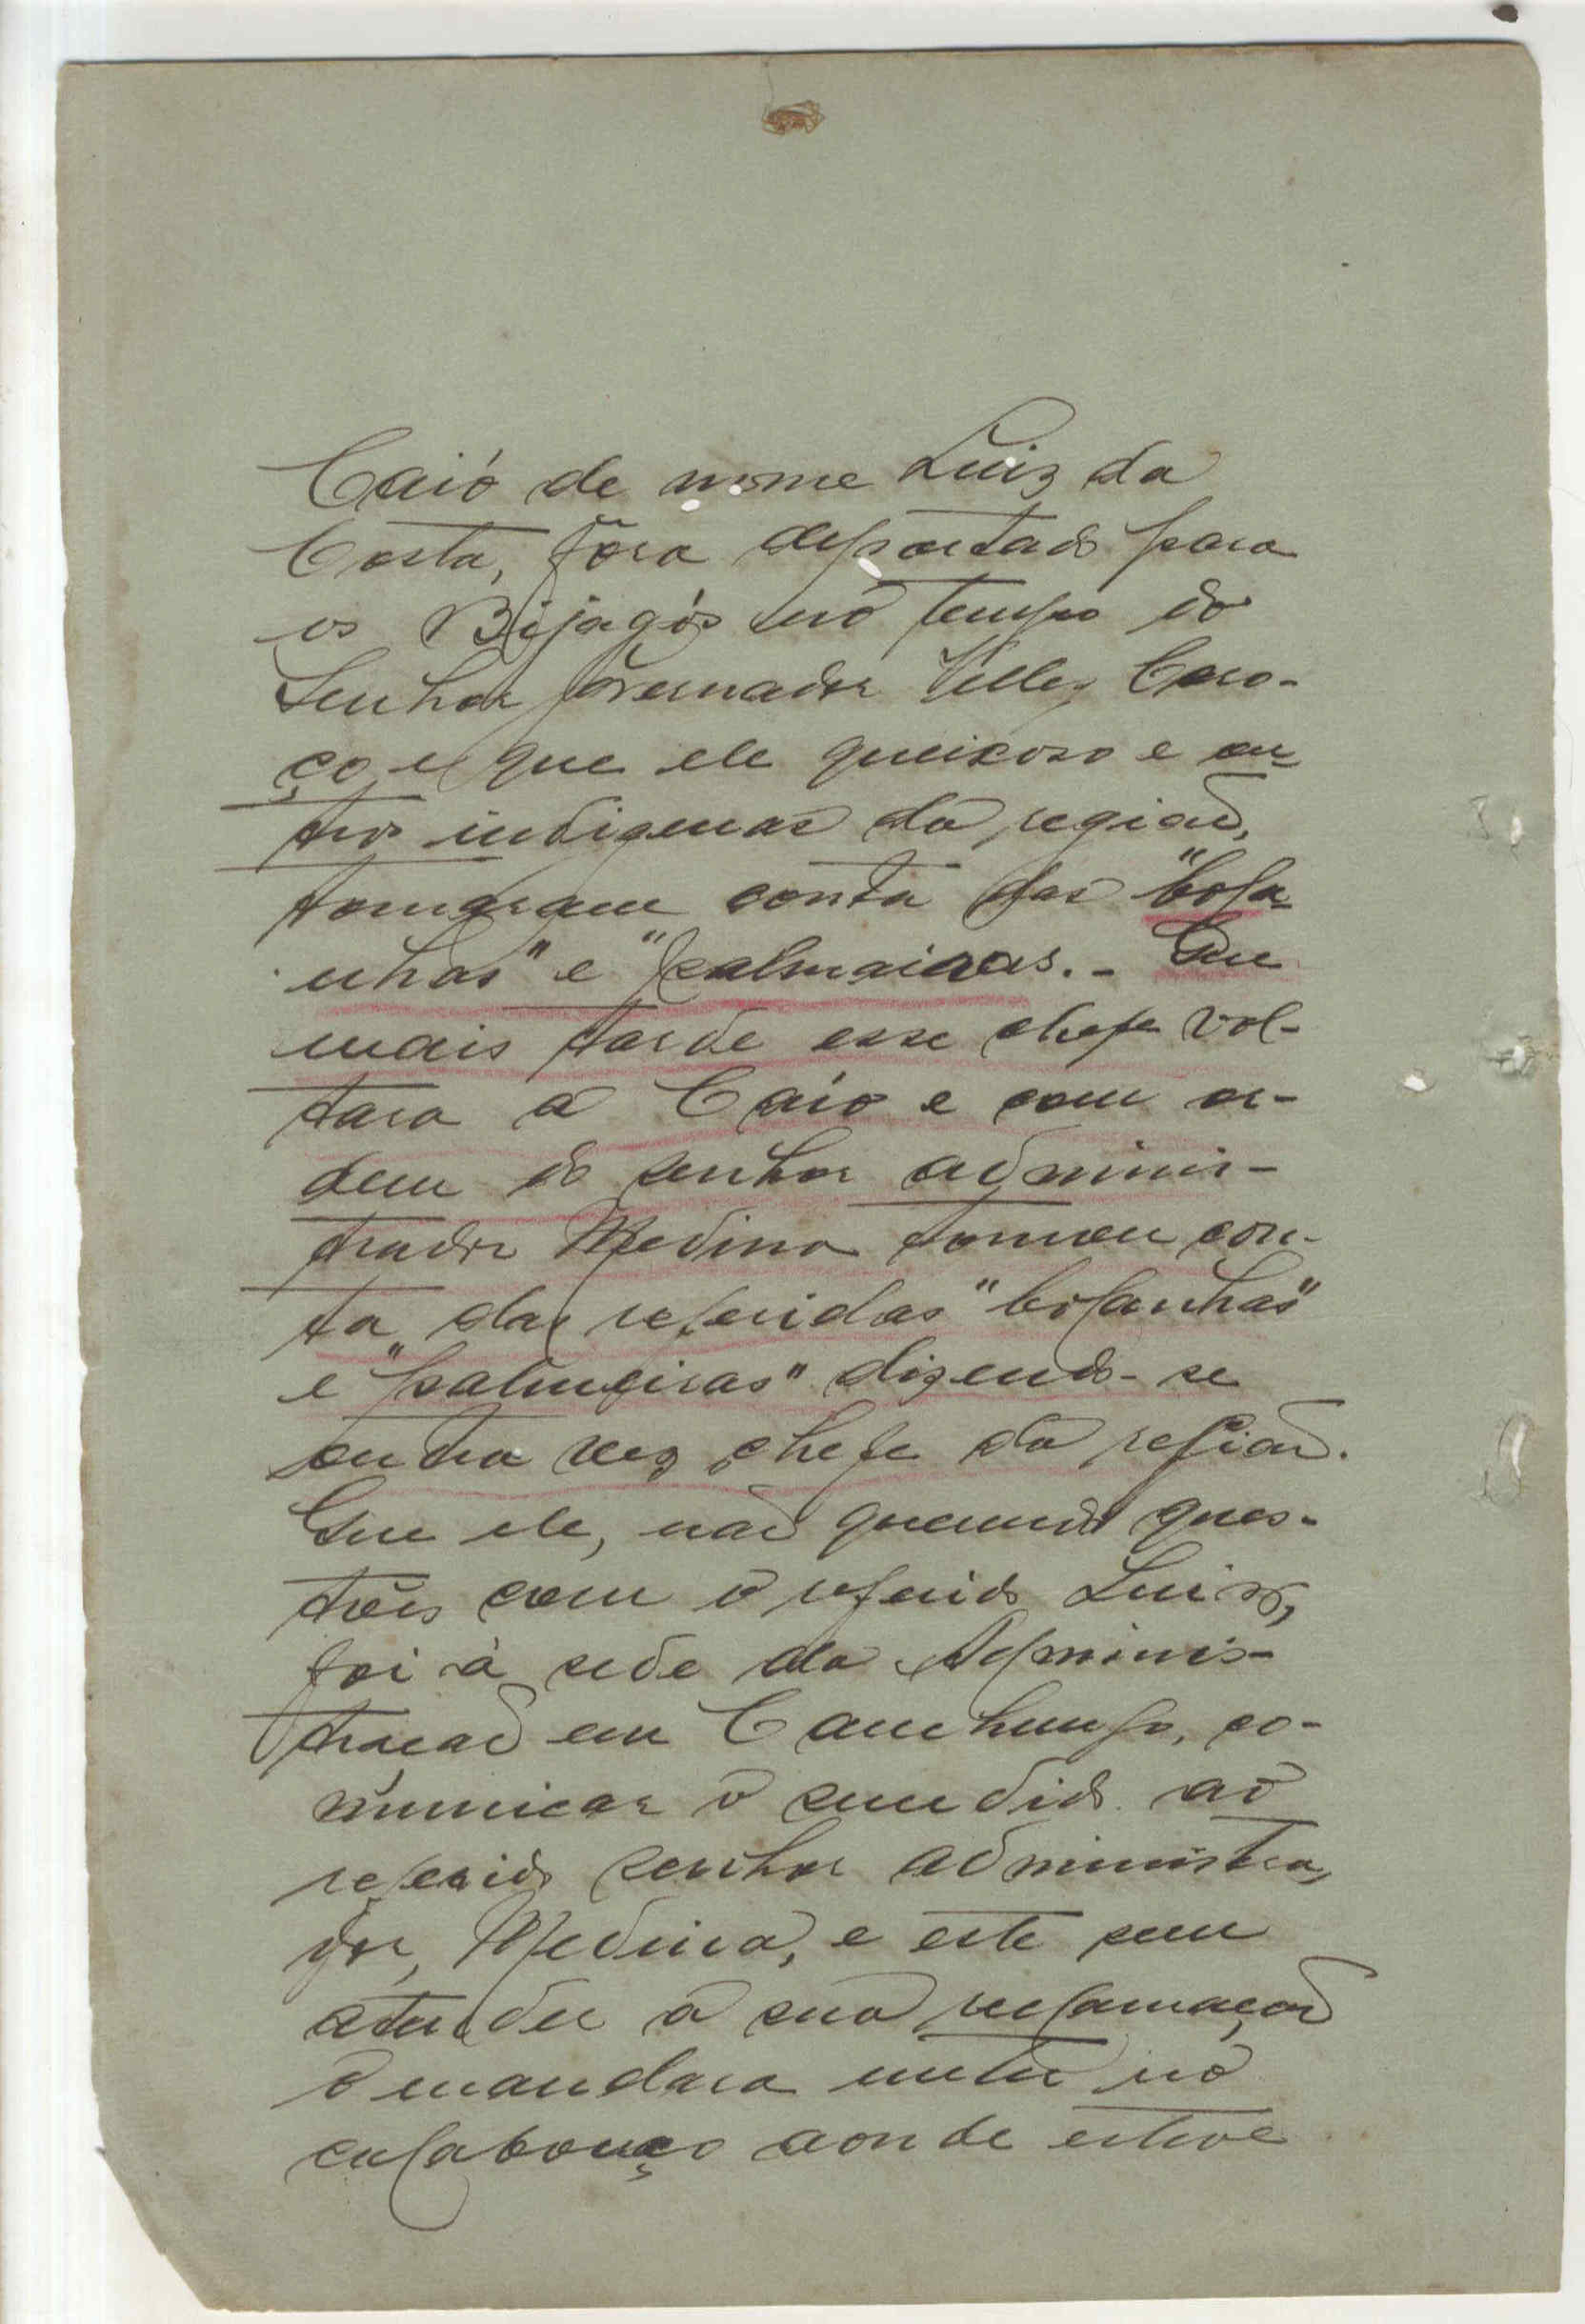 Caió de nome Luiz da
Costa, fôra deportado para
os Bijagós no tempo do
Senhor Governador Vellez Caro-
ço e que ele queixoso e ou-
tros indigenas da região,
tomaram conta das "bola-
nhas" e "palmeiras. - Que
mais tarde esse chefe vol-
tara a Caió e com or-
dem do senhor adminis-
trador Medina tomou con-
ta das referidas "bolanhas"
e "palmeiras" dizendo-se
outra vez chefe da região.
Que ele, não querendo ques-
tões com o referido Luiz,
foi à sede da Adminis-
tração em Canchungo, co-
municar o sucedido ao
referido senhor administra-
dor, Medina, e este sem
atender a sua reclamação
o mandara meter no
calabouço aonde esteve